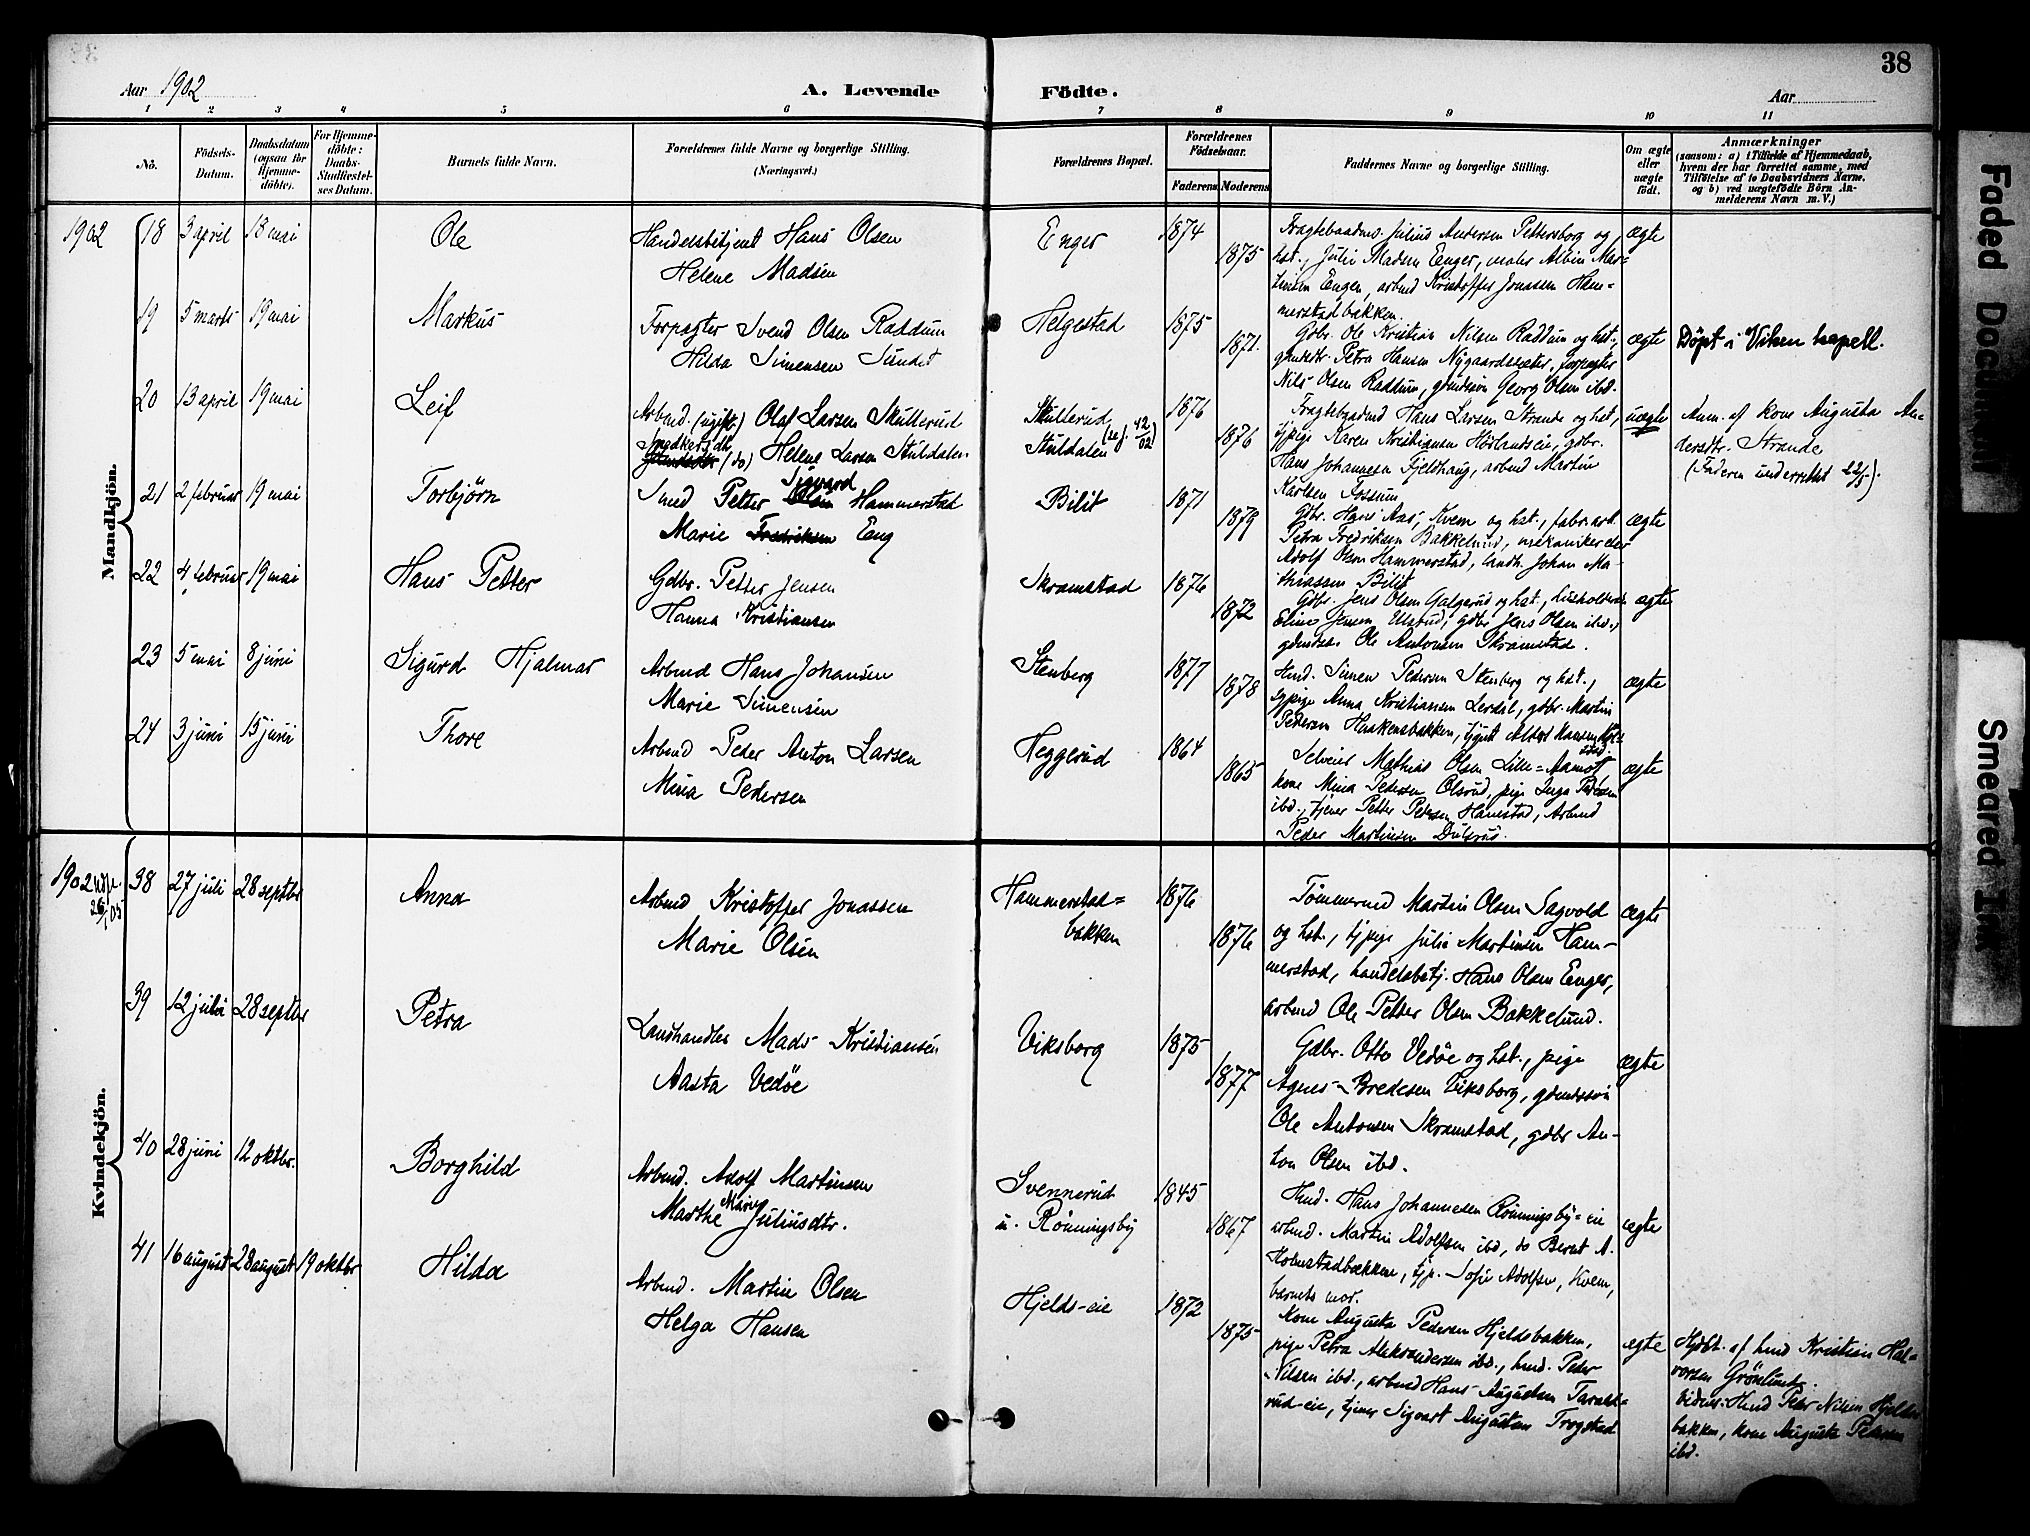 38
Aar 1902
A. Levende Födte.
Aar
1 2 3 4 5 6 7 8 9 10 11
Nö.
Födsels-
Datum.
Daabsdatum
(ogsaa for
Hjemme-
döbte).
For Hjemme-
döbte:
Daabs-
Stadfæstel-
ses Datum.
Barnets fulde Navn.
Forældrenes fulde Navne og borgerlige Stilling.
(Næringsvei.)
Forældrenes Bopæl.
Forældrenes
Födselsaar.
Faderens Moderens
Faddernes Navne og borgerlige Stilling.
Om ægte
eller
uægte
födt.
Anmærkninger
(saasom: a) i Tilfælde af Hjemmedaab,
hvem der har forrettet samme, med
Tilföielse af to Daabsvidners Navne,
og b) ved uægtefödte Börn An-
melderens Navn m. V.)
Mandkjön.
1902 18 3 april 18 mai Ole
Handelsbetjent Hans Olsen
Helene Madsen
Enger 1874
1875
Fragtebaadms. Julius Andersen Pettersborg og
hst., Julie Madsen Enger, maler Albin Mar-
tinsen Engen, arbmd Kristoffer Jonassen Ham-
merstadbakken.
ægte
19 5 marts 19 mai Markus
Forpagter Svend Olsen Raddum
Hilda Simensen Sundet
Helgestad 1875
1871.
Gdbr. Ole Kristian Nilsen Raddum og hst.,
gmdsdtr Petra Hansen Nygaardssæter, forpagter
Nils Olsen Raddum, gmdssön Georg Olsen ibd.
ægte
Döpt i Viken kapell.
20 13 april 19 mai Leif
Arbmd. (ugift) Olaf Larsen Skutterud
Snedkersdtr.
(do) Helene Larsen Stuldalen
Skutterud
Stuldalen (se j. 42/02)
1876
1876
Fragtebaadmd Hans Larsen Strande og hst,
tjpige Karen Kristiansen Hörlandseie, gdbr.
Hans Johannesen Fjeldhaug, arbmd Martin
Karlsen Fossum
uægte
Anm. af kone Augusta An-
dersdtr. Strande
(Faderen underrettet 22/5).
21 2 februar 19 mai Torbjörn
Smed Petter Sigvard Hammerstad
Marie Fredriksen Eng
Bilit 1871
1879
Gdbr. Hans Aas, Kvem og hst., fabr. arb.
Petra Fredriksen Bakkelund, mekaniker
Adolf Olsen Hammerstad, landh. Johan Ma-
thiassen Bilit
ægte
22 4 februar 19 mai Hans Petter
Gdbr. Petter Jensen
Hanna Kristiansen
Skramstad 1876
1872
Gdbr. Jens Olsen Galgerud og hst., husholderske
Eline Jensen Ulsrud, gdbr Jens Olsen ibd.,
gdmdssn. Ole Antonsen Skramstad.
ægte
23 5 mai 8 juni Sigurd Hjalmar
Arbmd Hans Johansen
Marie Simensen
Stenberg 1877
1878
Hmd. Simen Pedersen Stenberg og hst.,
sypige Anna Kristiansen Lerdal, gdbr. Martin
Pedersen Haakensbakken, tjgut Albert Hansen
ægte
24 3 juni 15 juni Thore
Arbmd Peder Anton Larsen
Mina Pedersen
Heggerud 1864
1865
Selveier Mathias Olsen Lille-Aamot
kone Mina Petersen Olsrud, pige Inga Pedersen
ibd., tjener Petter Pedersen Hanestad, Arbmd
Peder Martinsen Dulsrud.
ægte
Kvindekjön.
1902 38 27 juli 28 septbr Anna
Arbmd Kristoffer Jonassen
Marie Olsen
Hammerstad-
bakken
1876
1876
Tömmermd Martin Olsen Sagvold
og hst., tjpige Julie Martinsen Ham-
merstad, handelsbetj. Hans Olsen Enger,
arbmd Ole Petter Olsen Bakkelund.
ægte
39 12 juli 28 septbr Petra
Landhandler Mads Kristiansen
Aasta Vedöe
Viksborg 1875
1877
Gdbr. Otto Vedöe og hst., pige
Agnes Bredesen Viksborg, gdmdssön
Ole Antonsen Skramstad, gdbr An-
ton Olsen ibd.
ægte
40 28 juni 12 oktbr. Borghild
Arbmd. Adolf Martinsen
Marthe Marie Juliusdtr.
Svennerud
u. Rönningsby
1845
1867
Hmd. Hans Johannesen Rönningsby-eie
arbmd. Martin Adolfsen ibd, do Bernt A.
Holmstadbakken, tjp. Sofie Adolfsen, Kvem,
barnets mor.
ægte
41 16 august 28 august 19 oktbr Hilda
Arbmd. Martin Olsen
Helga Hansen
Hjelds-eie 1872
1875
Kone Augusta Pedersen Hjeldsbakken,
pige Petra Aleksandersen ibd., hmd. Peder
Nilsen ibd., arbmd Hans Augustsen Taralds-
rud-eie, tjener Sigvart Augustsen Trogstad
ægte
Hjdbt. af hmd Kristian Hal-
vorsen Grönlund.
vidner: Hmd Peder Nilsen Hjelds-
bakken, kone Augusta Pedersen
ibd.
Faded Document
Smeared Ink